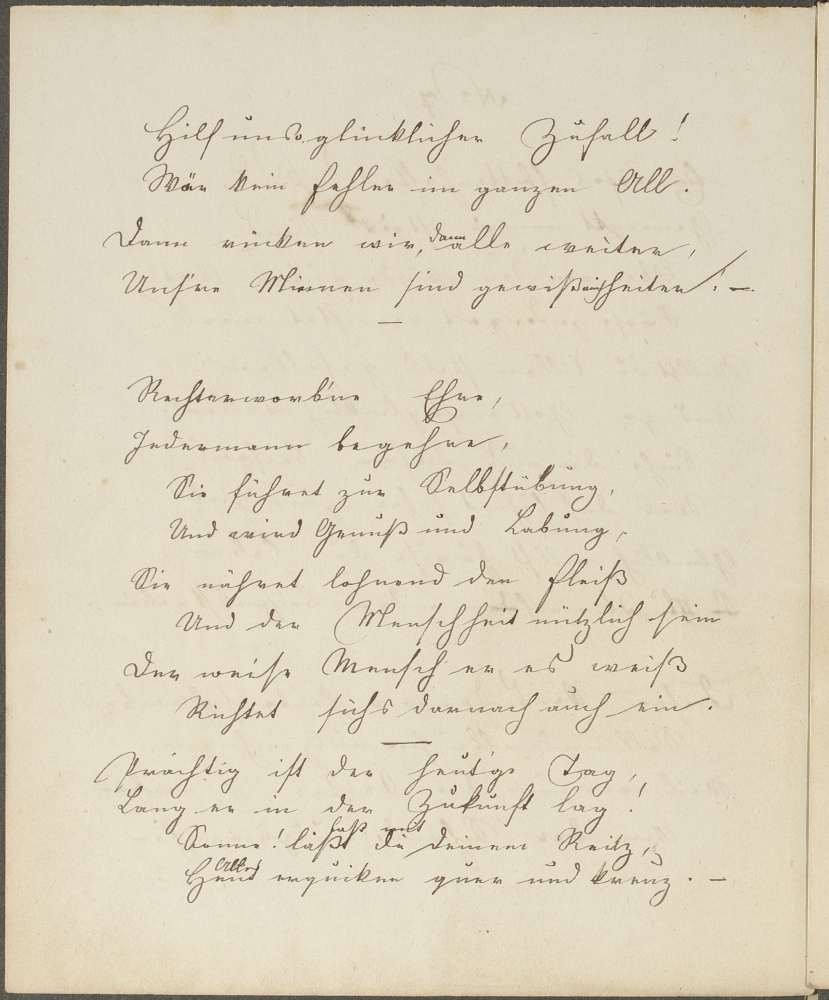 Hilf uns glücklicher Zufall!
Wär kein Fehler im ganzen All.
Dann rücken wir, dann alle weiter,
Uns're Mienen sind gewiß heiter! —
Rechterworb'ne Ehre,
Jedermann begehre,
Sie führet zur Selbstübung,
Und wird Genuß und Labung,
Sie nähret lohnend den Fleiß
Und der Menschheit nützlich sein
Der weise Mensch er es weiß
Richtet sichs darnach auch ein.
Prächtig ist der heut'ge Tag,
Lang er in der Zukunft lag!
Sonne! läßt du deinen Reitz,
Alles
Heut erquiken quer und kreuz. —